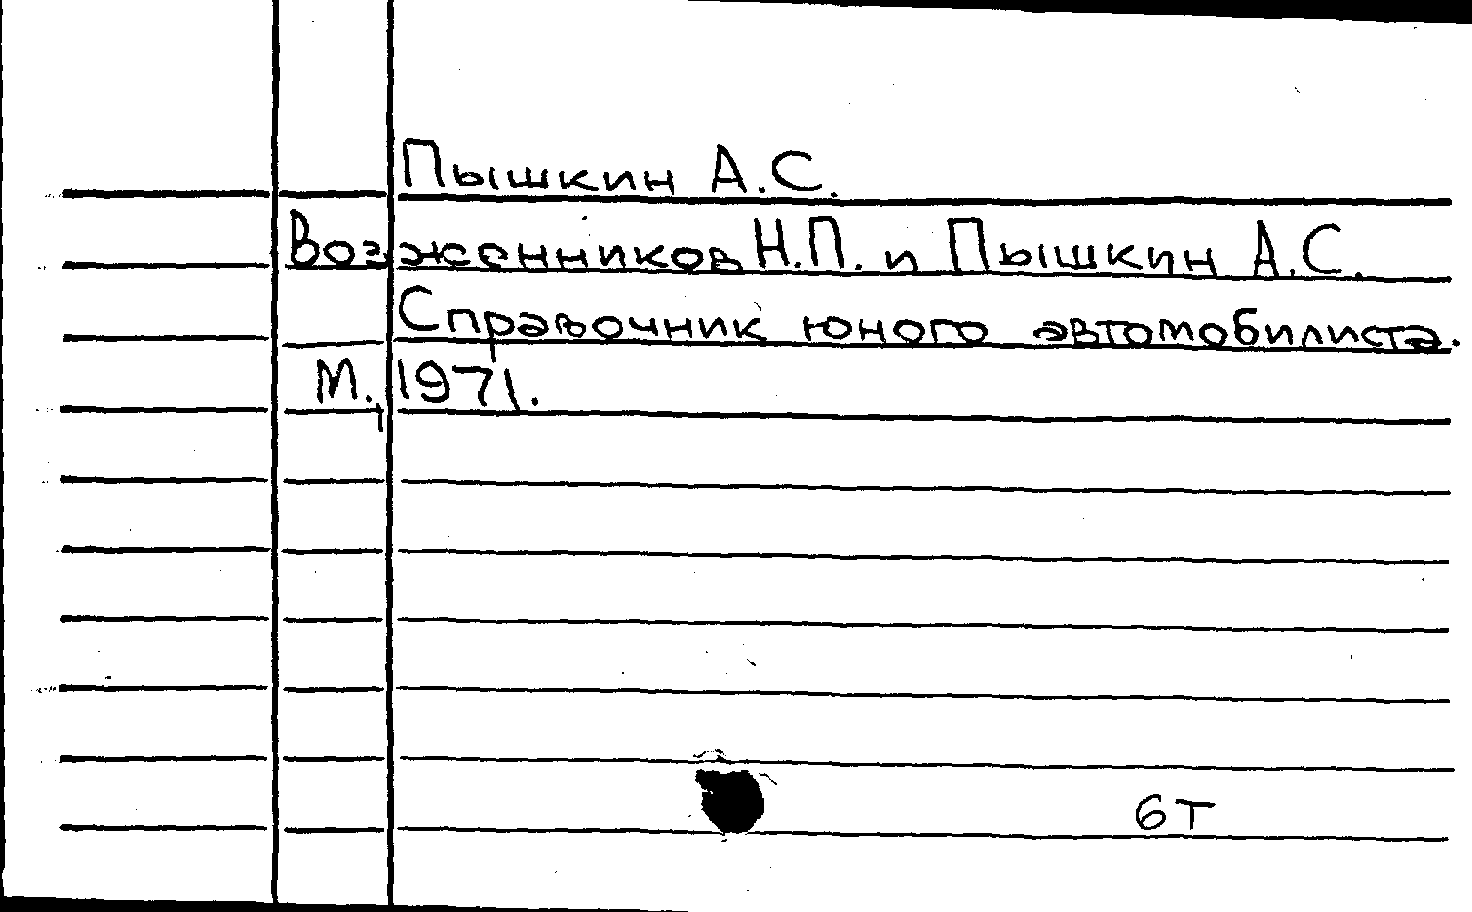 Пышкин А.С.
Возженников Н.П. и Пышкин А.С.
Справочник юного автомобилиста.
М., 1971.
6т